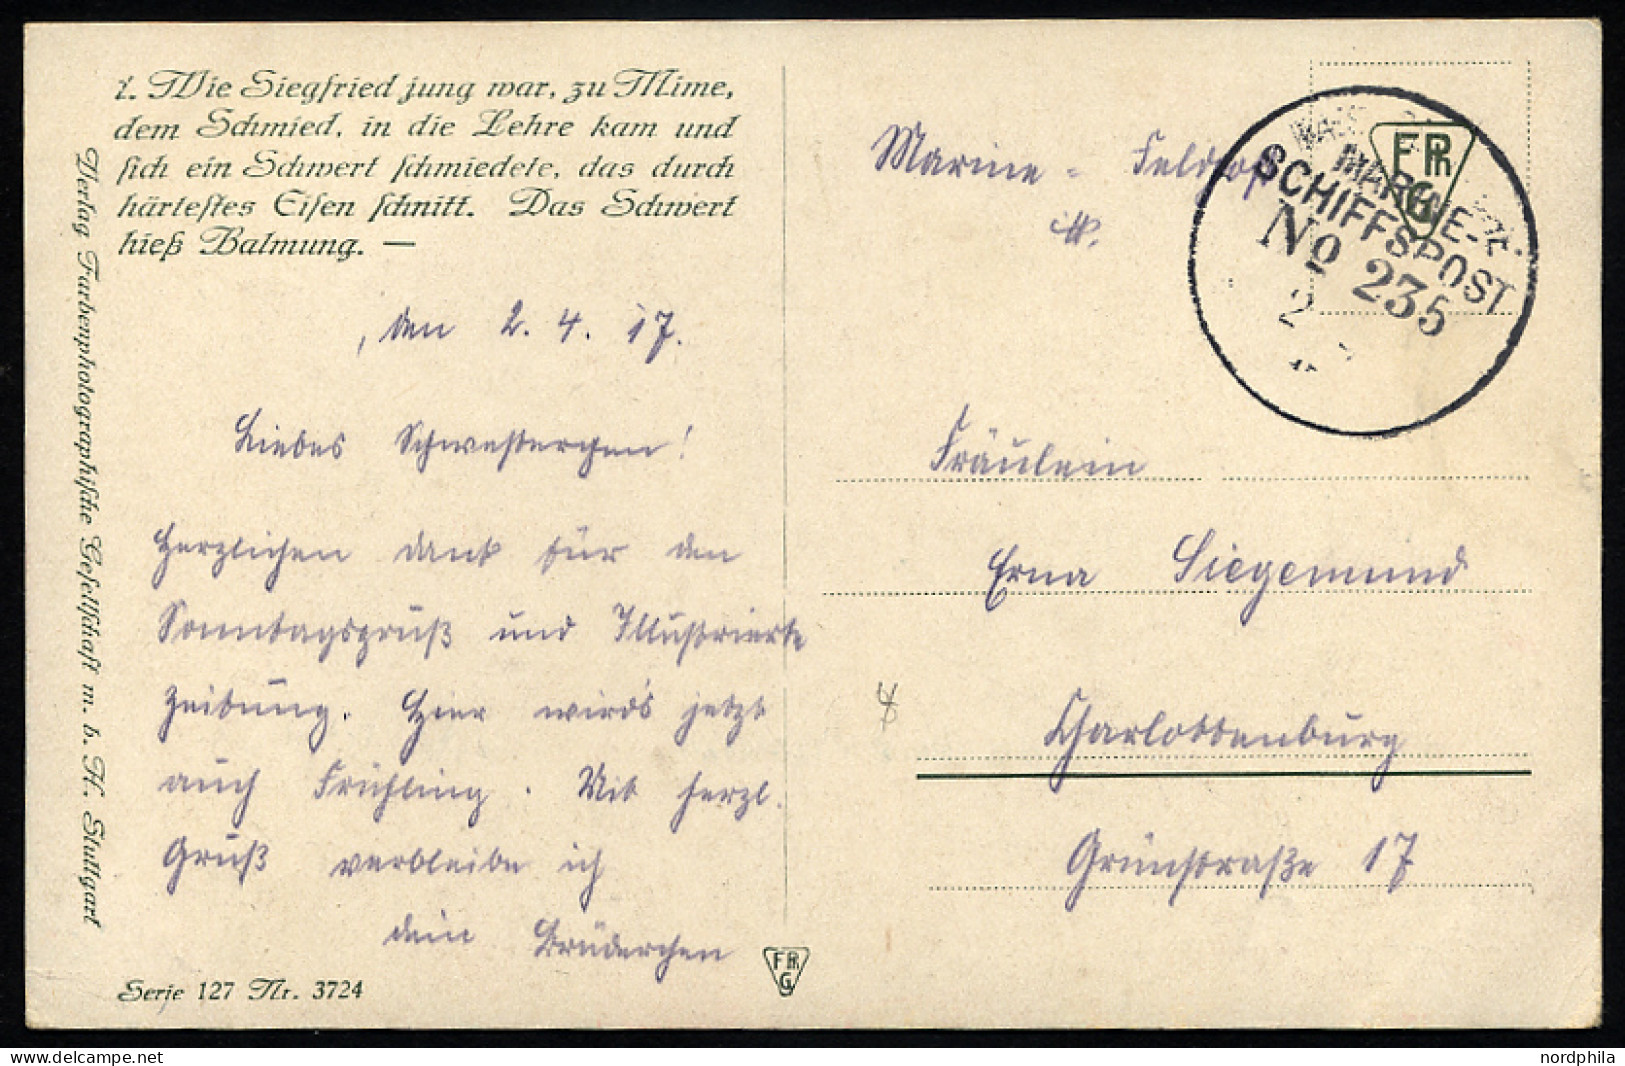 1. Wie Siegfried jung war, zu Mime,
dem Schmied, in die Lehre kam und
sich ein Schwert schmiedete, das durch
härtestes Eisen schnitt. Das Schwert
hieß Balmung. —
Verlag Farbenphotographische Gesellschaft m. b. H. Stuttgart
, den 2. 4. 17.
Liebes Schwesterchen!
Herzlichen dank für den
Sonntagsgruß und Illustrierte
Zeitung. Hier wird's jetzt
auch Frühling. Mit herzl.
Gruß verbleibe ich
dein Brüderchen
Serie 127 Nr. 3724
FPhG
Marine - Feldpost
FPhG
MARINE-
SCHIFFSPOST
No 235
2
Fräulein
Erna Siegemund
Charlottenburg
Grünstraße 17
nordphila